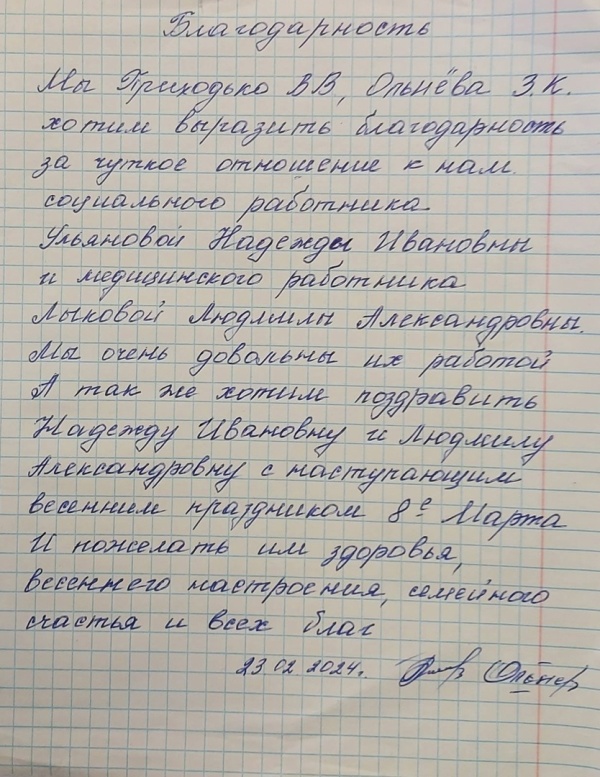 Благодарность
Мы Приходько В В, Ольнёва З.К.
хотим выразить благодарность
за чуткое отношение к нам
социального работника
Ульяновой Надежды Ивановны
и медицинского работника
Лыковой Людмилы Александровны.
Мы очень довольны их работой
А так же хотим поздравить
Надежду Ивановну и Людмилу
Александровну с наступающим
весенним праздником 8е Марта
И пожелать им здоровья,
весеннего настроения, семейного
счастья и всех благ
23 02 2024г.